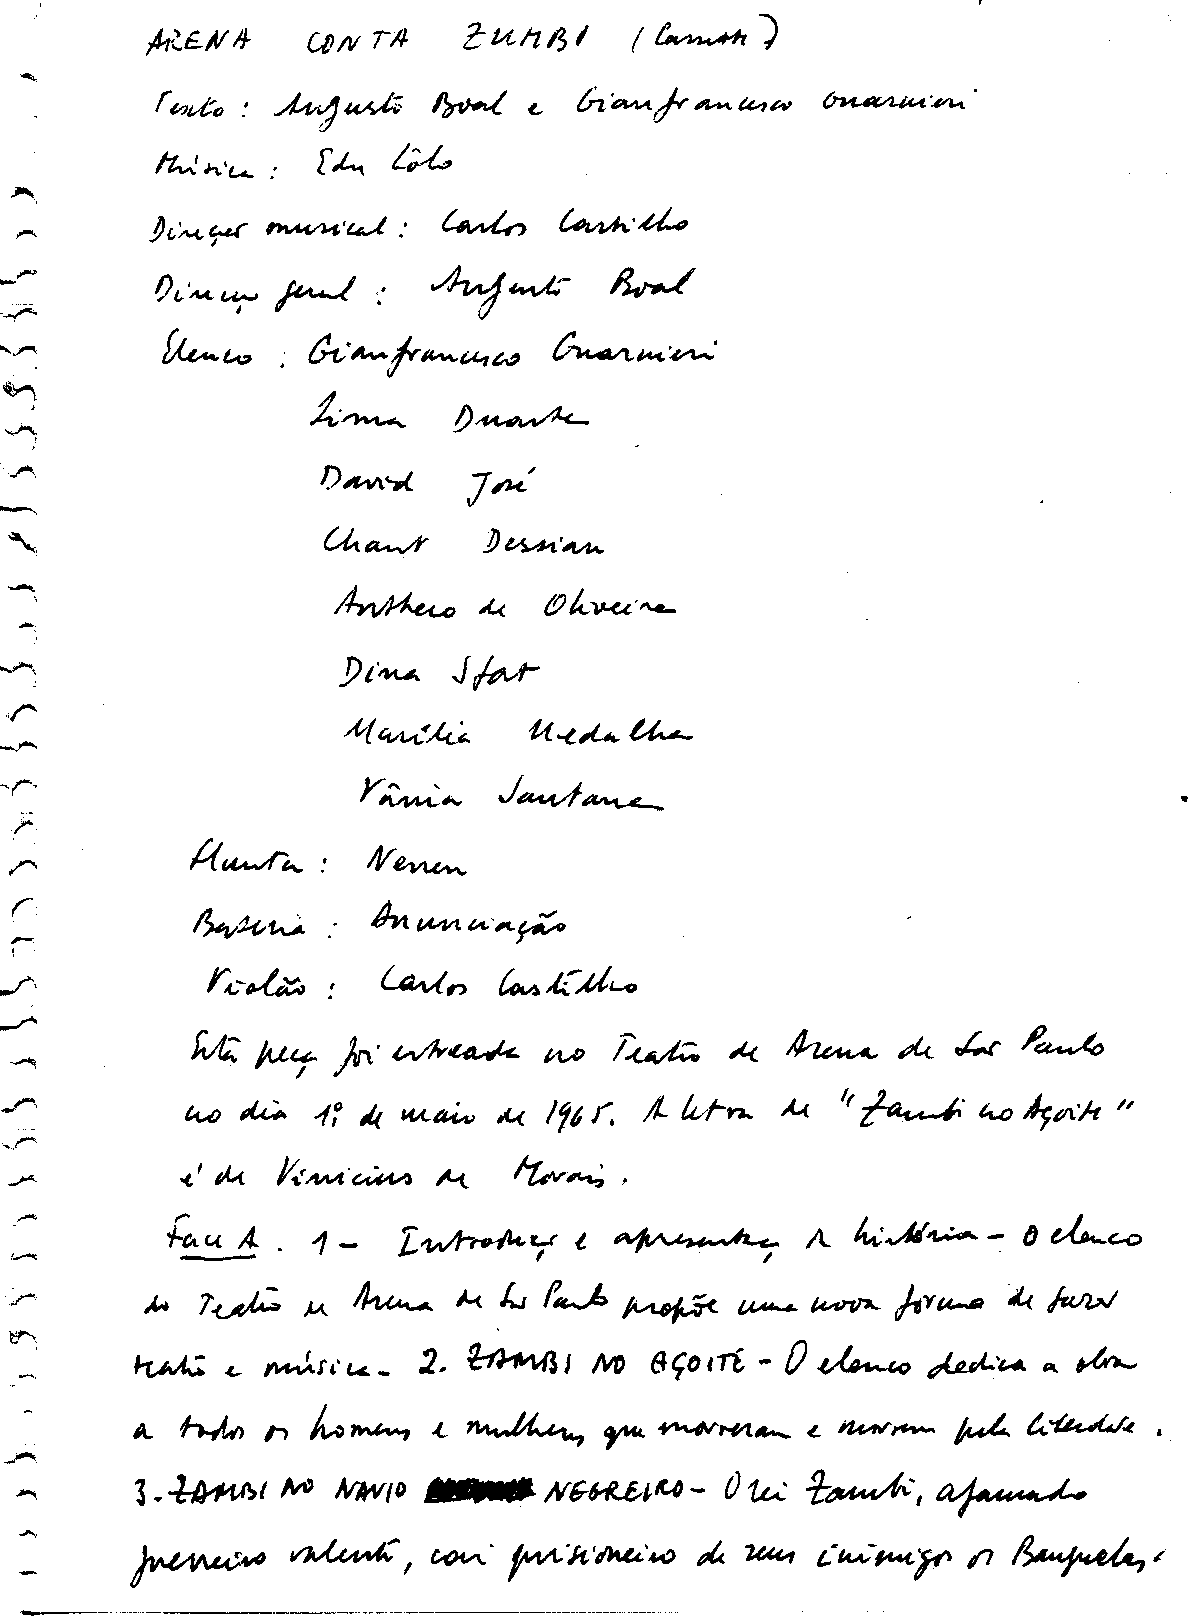 ARENA CONTA ZUMBI (Cassete)
Texto: Augusto Boal e Gianfrancesco Guarnieri
Música: Edu Lôbo
Direção musical: Carlos Castilho
Direção geral: Augusto Boal
Elenco: Gianfrancesco Guarnieri
Lima Duarte
David José
Chant Dessian
Anthero de Oliveira
Dina Sfat
Marília Medalha
Vânia Santana
Flauta: Nenen
Bateria: Anunciação
Violão: Carlos Castilho
Esta peça foi estreada no Teatro de Arena de São Paulo
no dia 1º de maio de 1965. A letra de "Zambi no Açoite"
é de Vinicius de Morais.
Face A. 1 - Introdução e apresentação da história - O elenco
do Teatro de Arena de São Paulo propõe uma nova forma de fazer
teatro e música - 2. ZAMBI NO AÇOITE - O elenco dedica a obra
a todos os homens e mulheres que morreram e morrem pela liberdade.
3. ZAMBI NO NAVIO NEGREIRO - O rei Zambi, afamado
guerreiro valente, cai prisioneiro de seus inimigos os Banguelas.